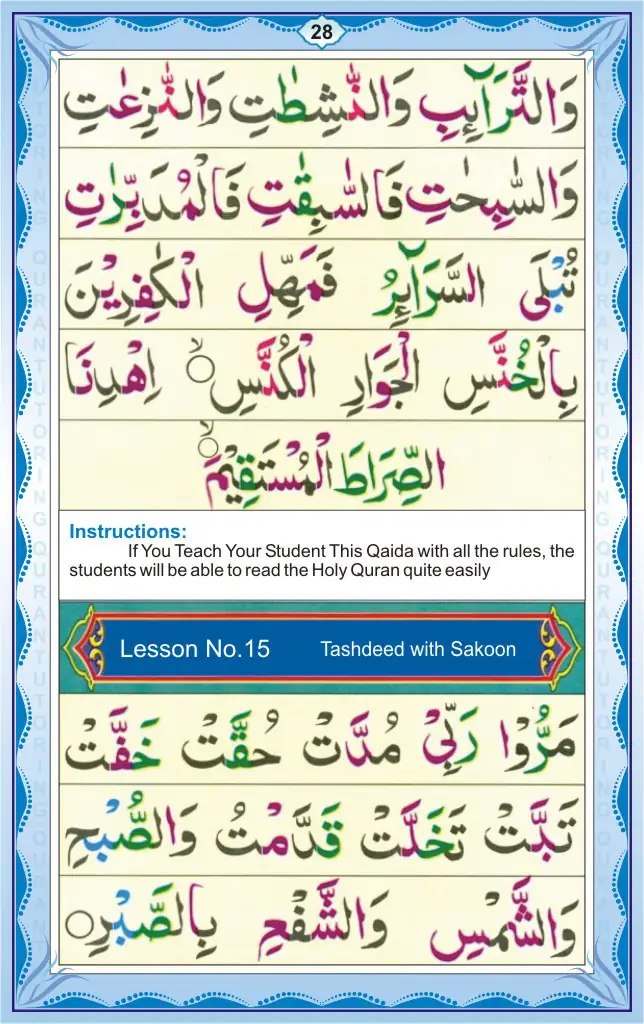 28
وَالتَّرَآئِبِ وَالنّٰشِطٰتِ وَالنّٰزِعٰتِ
وَالسّٰبِحٰتِ فَالسّٰبِقٰتِ فَالْمُدَبِّرٰتِ
تُبْلَى السَّرَآئِرُ فَمَهِّلِ الْكٰفِرِيْنَ
بِالْخُنَّسِ الْجَوَارِ الْكُنَّسِ ۙ اِهْدِنَا
الصِّرَاطَ الْمُسْتَقِيْمَ ۙ
Instructions:
If You Teach Your Student This Qaida with all the rules, the
students will be able to read the Holy Quran quite easily
Lesson No.15 Tashdeed with Sakoon
مَرُّوْا رَبِّيْ مُدَّتْ حُقَّتْ خَفَّتْ
تَبَّتْ تَخَلَّتْ قَدَّمْتُ وَالصُّبْحِ
وَالشَّمْسِ وَالشَّفْعِ بِالصَّبْرِ ○
QURAN TUTORING QURAN TUTORING